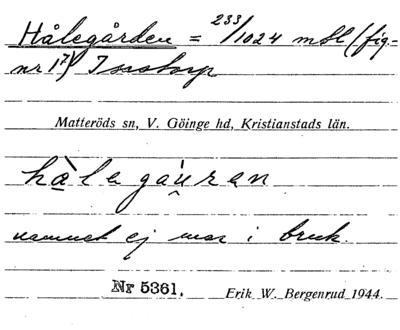 Hålegården = 233/1024 mtl (fig-
nr 17)
Matteröds sn, V. Göinge hd, Kristianstads län.
hàle gáu̯ren
namnet ej mer i bruk.
Nr 5361. Erik W. Bergenrud 1944.